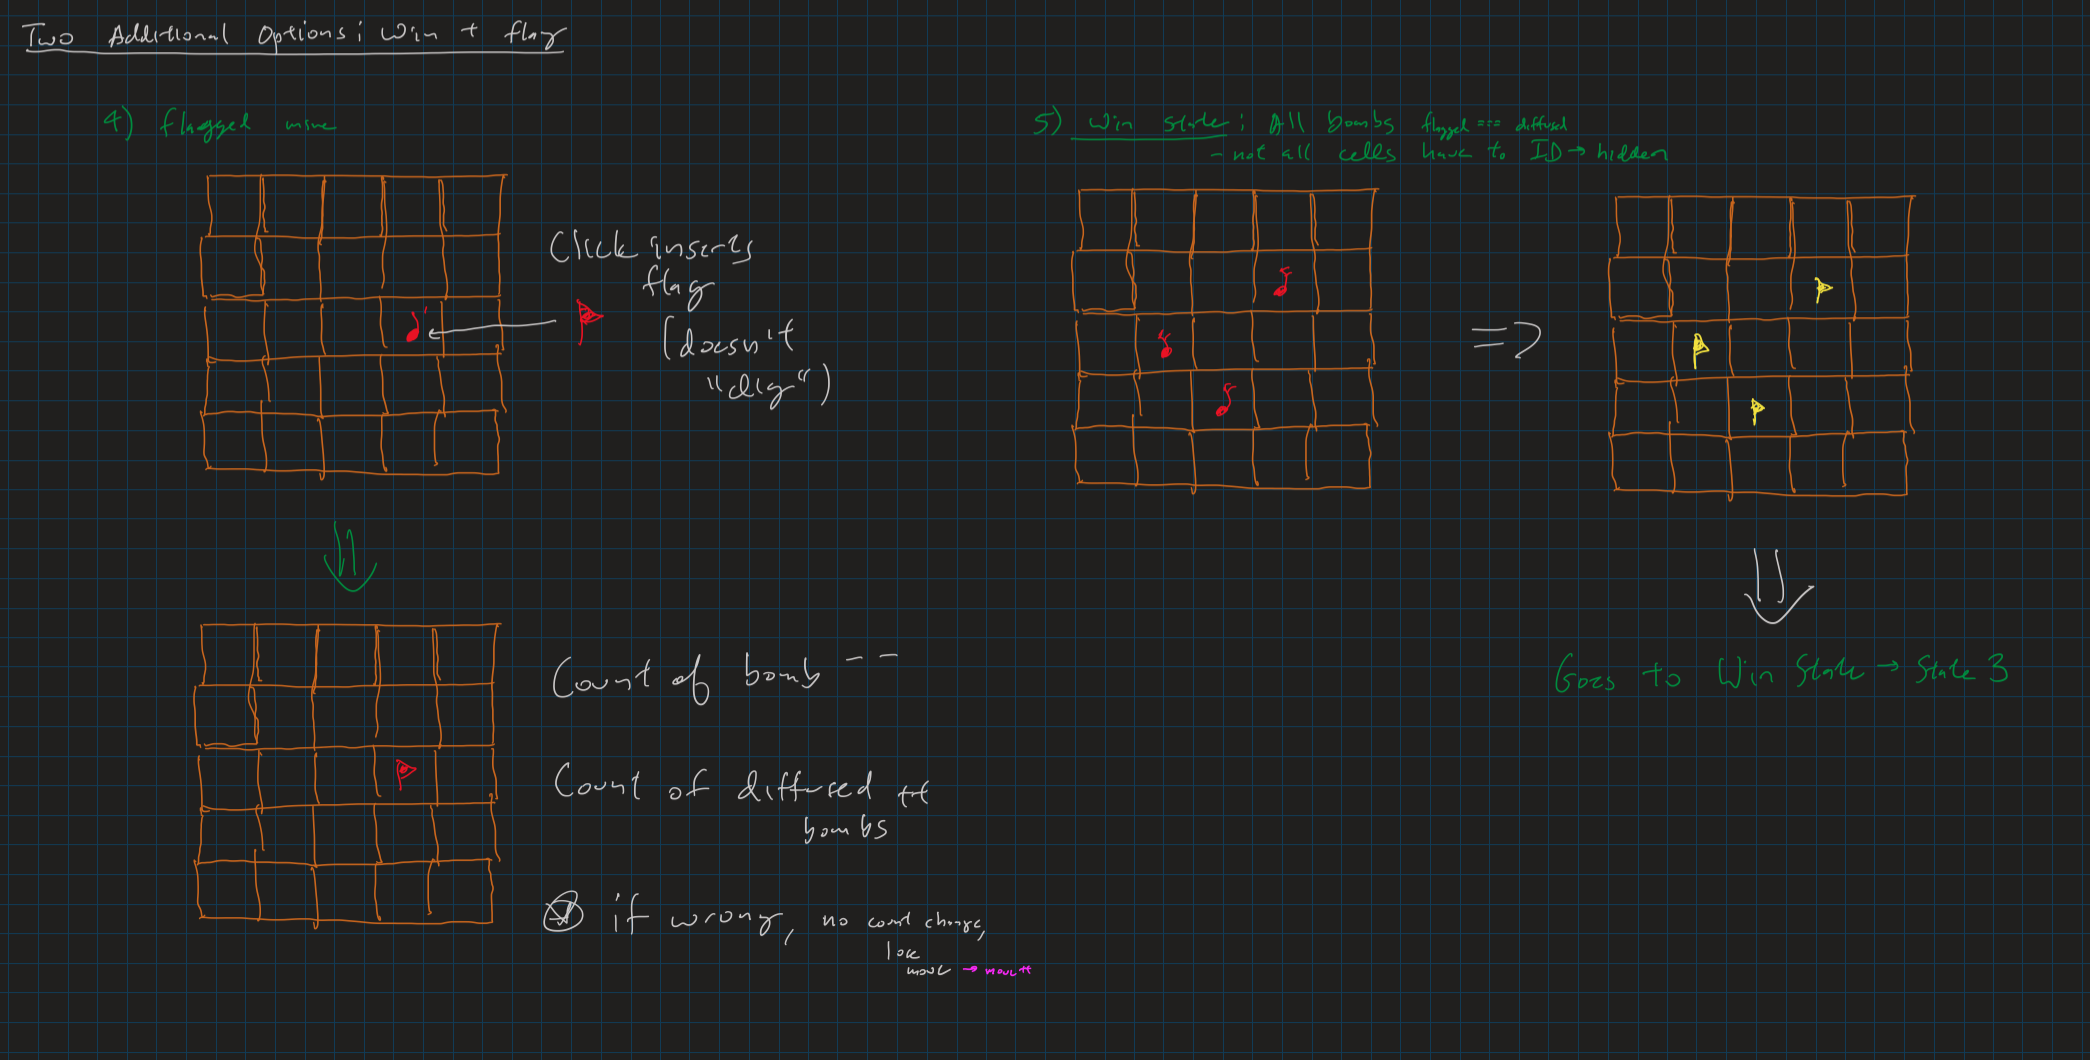 Two Additional Options: Win + flag
4) flagged mine
Click inserts
flag
(doesn't
"dig")
Count of bomb --
Count of diffused ++
bombs
if wrong, no count change,
lose
move → move++
5) Win State: All bombs flagged === diffused
- not all cells have to ID → hidden
=>
Goes to Win State → State 3